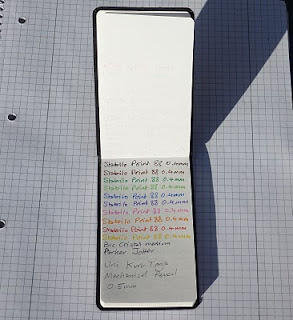 Stabilo Point 88 0.4mm
Stabilo Point 88 0.4mm
Stabilo Point 88 0.4mm
Stabilo Point 88 0.4mm
Stabilo Point 88 0.4mm
Stabilo Point 88 0.4mm
Stabilo Point 88 0.4mm
Stabilo Point 88 0.4mm
Stabilo Point 88 0.4mm
Stabilo Point 88 0.4mm
Bic Cristal medium
Parker Jotter
Uni Kuru Toga
Mechanical Pencil
0.5mm